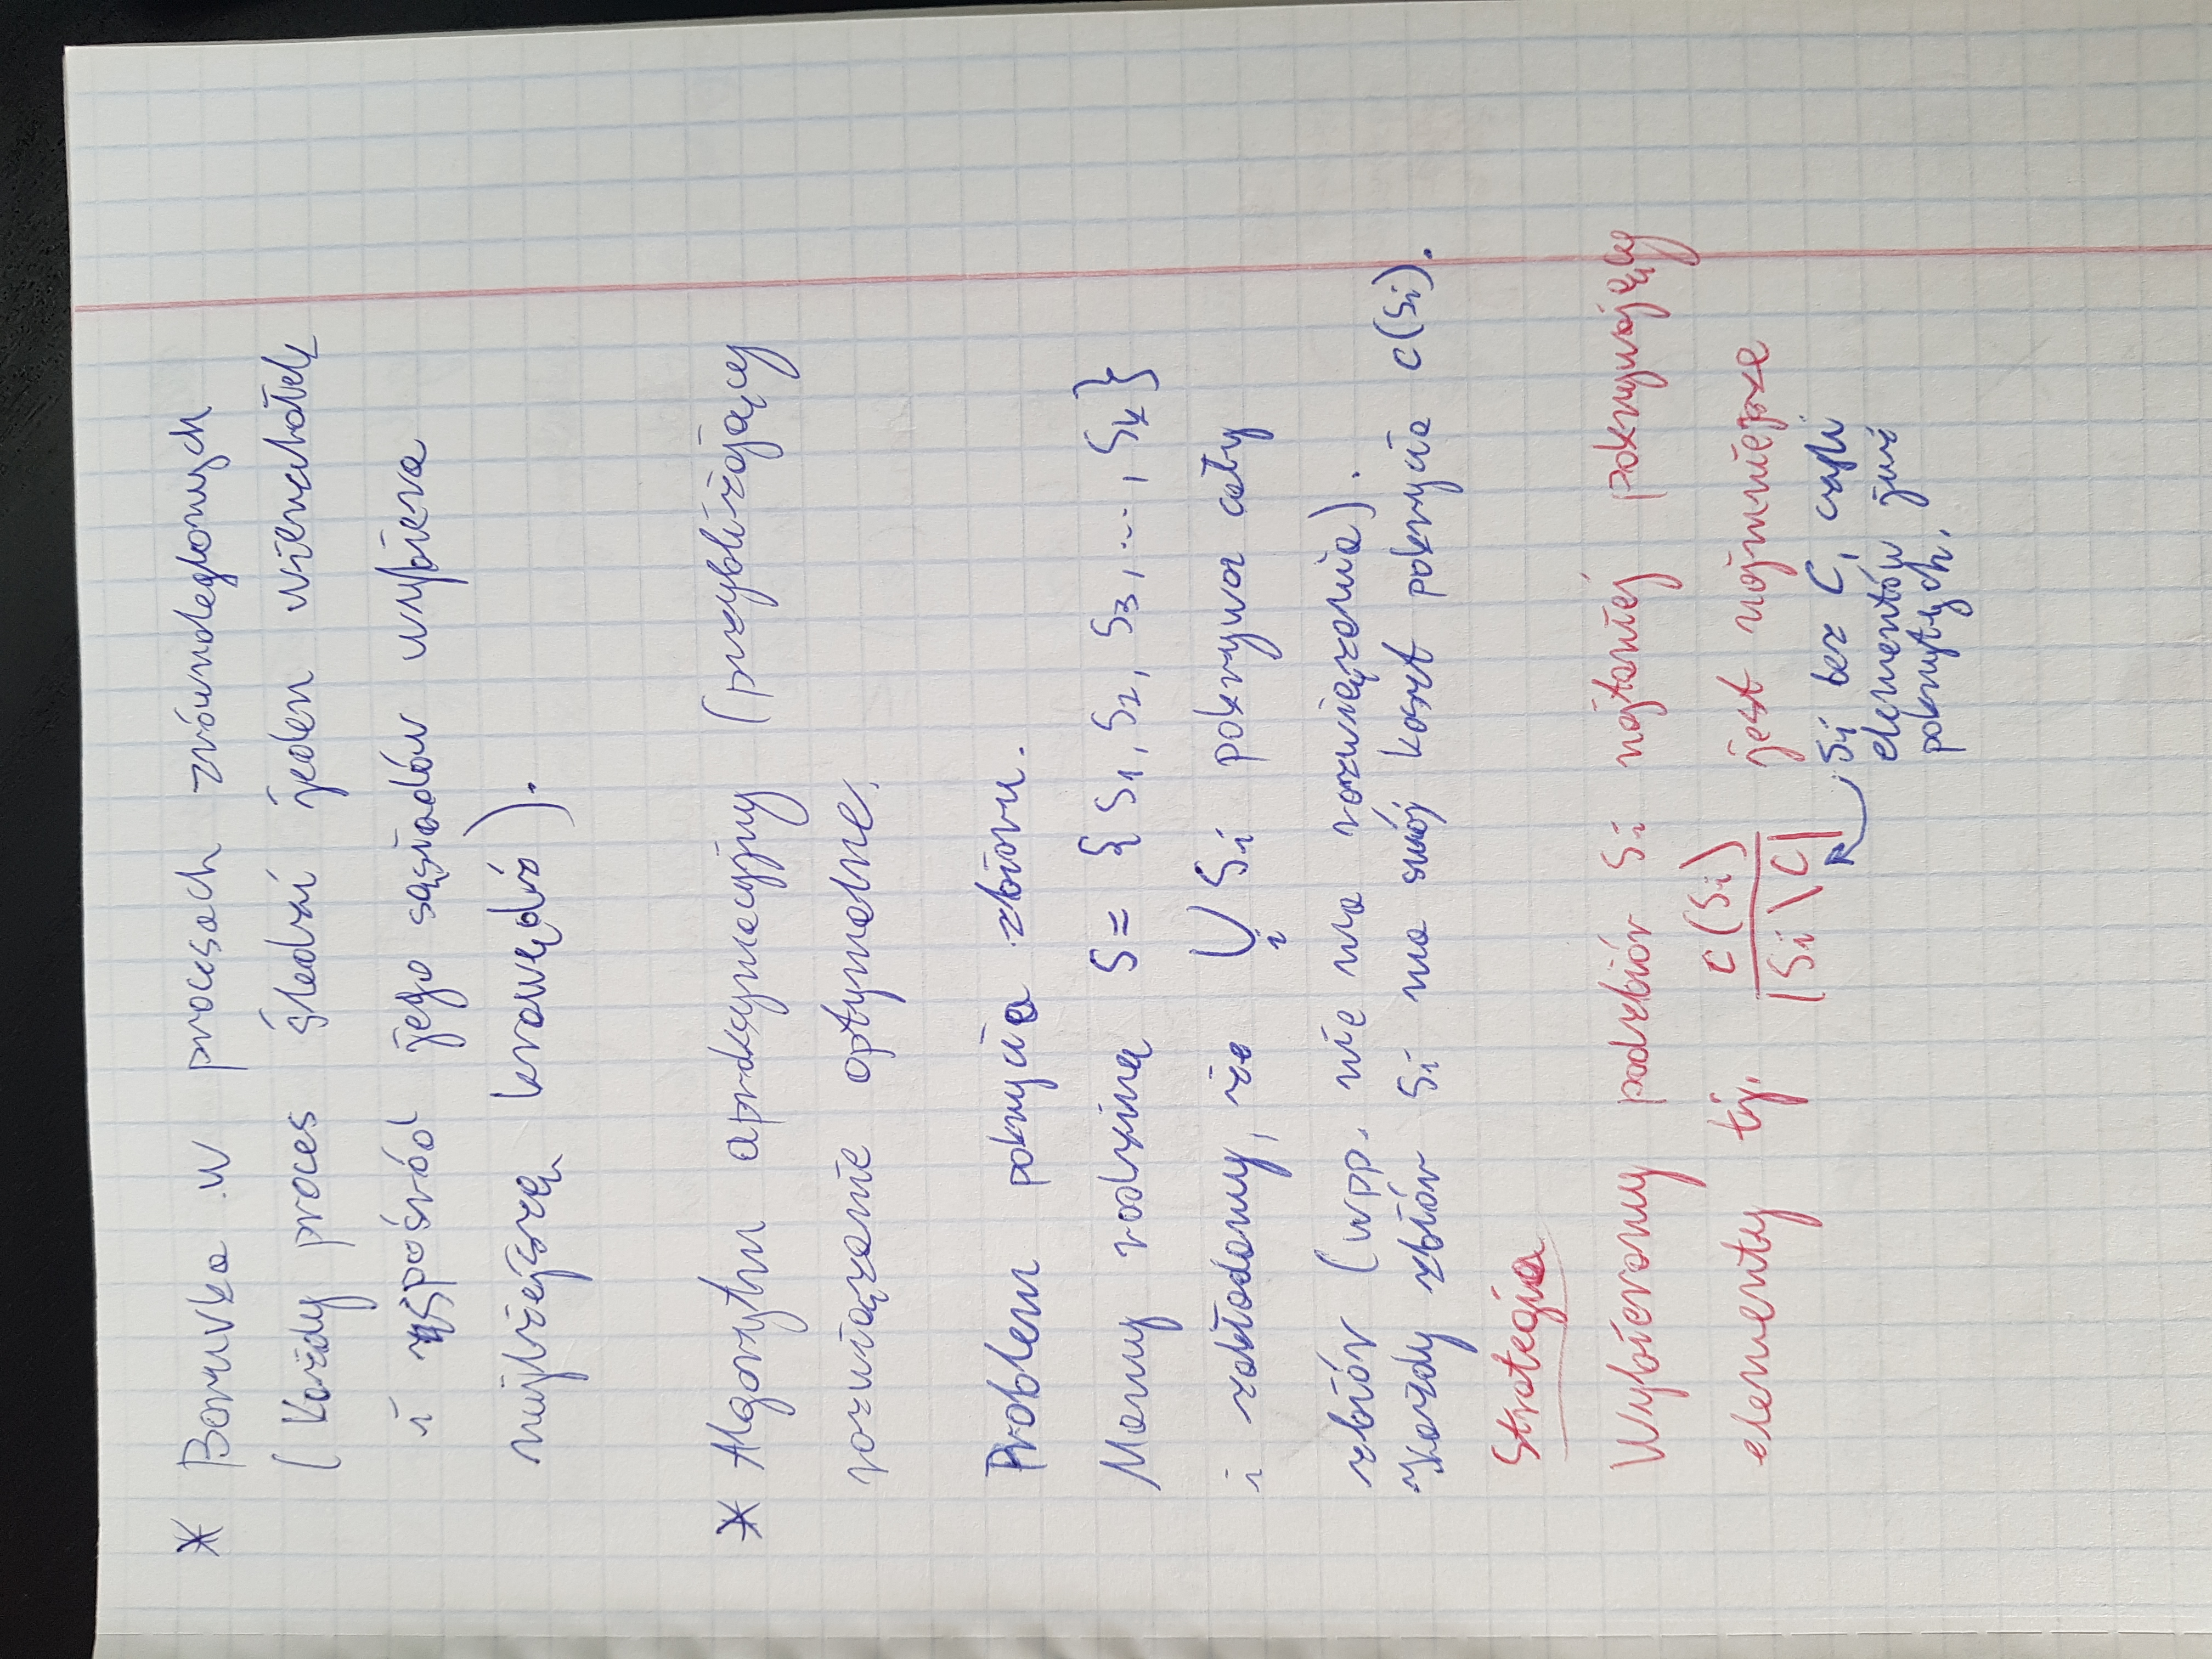 * Boruvka w procesach zrównoleglonych
(Każdy proces śledzi jeden wierzchołek
i spośród jego sąsiadów wybiera
najlżejszą krawędź).
* Algorytm aproksymacyjny (przybliżający
rozwiązanie optymalne.
Problem pokrycia zbioru.
Mamy rodzinę S = {S₁, S₂, S₃, ..., Sₖ}
i zakładamy, że ⋃ᵢ Si pokrywa cały
zbiór (wpp. nie ma rozwiązania).
Każdy zbiór Si ma swój koszt pokrycia c(Si).
Strategia
Wybieramy podzbiór Si najtaniej pokrywający
elementy tj. c(Si) / |Si \ C| jest najmniejsze
Si bez C, czyli
elementów już
pokrytych.